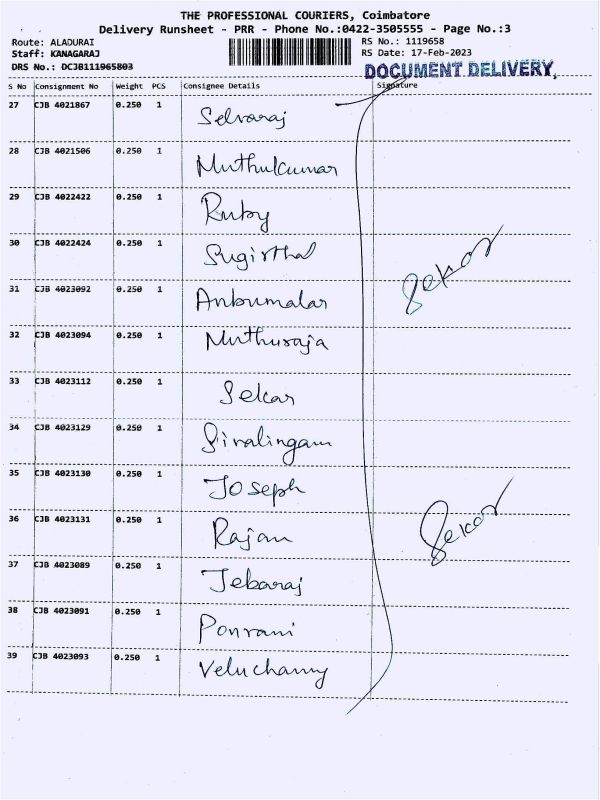 THE PROFESSIONAL COURIERS, Coimbatore
Delivery Runsheet - PRR - Phone No.:0422-3505555 - Page No.:3
Route: ALADURAI RS No.: 1119658
Staff: KANAGARAJ RS Date: 17-Feb-2023
DRS No.: DCJB111965803 DOCUMENT DELIVERY,
S No Consignment No Weight PCS Consignee Details Signature
27 CJB 4021867 0.250 1 Selvaraj
28 CJB 4021506 0.250 1 Muthulcumar
29 CJB 4022422 0.250 1 Ruby
30 CJB 4022424 0.250 1 Sugirtha Sekar
31 CJB 4023092 0.250 1 Anbumalar
32 CJB 4023094 0.250 1 Muthuraja
33 CJB 4023112 0.250 1 Sekar
34 CJB 4023129 0.250 1 Sivalingam
35 CJB 4023130 0.250 1 Joseph
36 CJB 4023131 0.250 1 Rajan Sekar
37 CJB 4023089 0.250 1 Jebaraj
38 CJB 4023091 0.250 1 Ponrani
39 CJB 4023093 0.250 1 Veluchamy